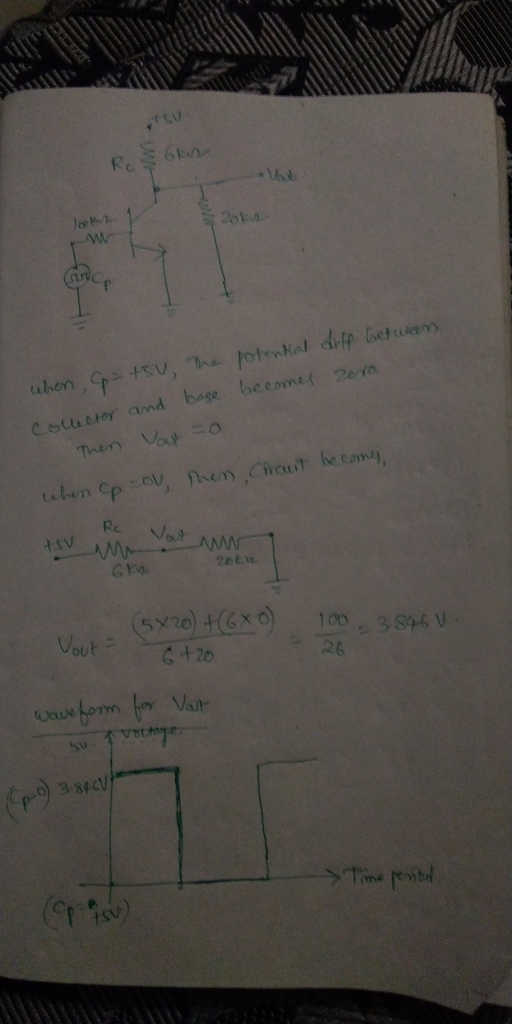 +5V
Rc 6kΩ
Vout
100kΩ
20kΩ
Cp
when, Cp = +5V, The potential diff. between
Collector and base becomes zero
Then Vout = 0
when Cp = 0V, Then, Circuit becomes,
+5V Rc Vout
6kΩ 20kΩ
Vout = (5×20)+(6×0) / 6+20 = 100/26 = 3.846 V.
waveform for Vout
5V voltage
(Cp=0) 3.846V
Time period
(Cp = +5V)